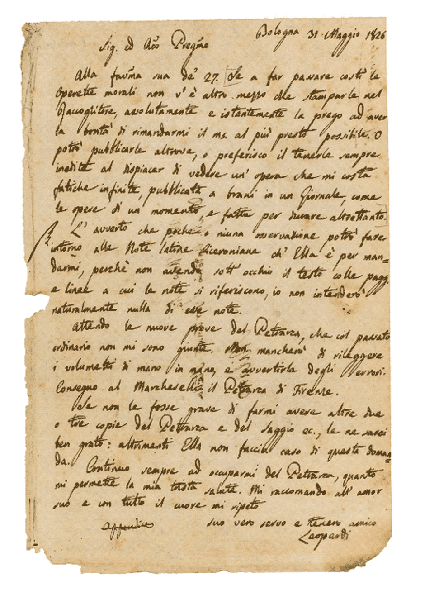 Bologna 31 Maggio 1826
Sig. ed Am. Pregmo
Alla favma sua de' 27. Se a far passare costì le
Operette morali non v'è altro mezzo che stamparle nel
Raccoglitore, assolutamente e istantemente la prego ad aver
la bontà di rimandarmi il ms al più presto possibile. O
potrò pubblicarle altrove, o preferisco il tenerle sempre
inedite al dispiacer di vedere un'opera che mi costa
fatiche infinite, pubblicata a brani in un Giornale, come
le opere di un momento, e fatte per durare altrettanto.
L'avverto che poche o niuna osservazione potrò fare
intorno alle Note latine Ciceroniane ch'Ella è per man-
darmi, perchè non avendo sott'occhio il testo colle pagg.
e linee a cui le note si riferiscono, io non intenderò
naturalmente nulla di esse note.
Attendo le nuove prove del Petrarca, che col passato
ordinario non mi sono giunte. Non mancherò di rileggere
i volumetti di mano in mano, e avvertirla degli errori.
Consegno al Marchesello il Petrarca di Firenze.
Se non le fosse grave di farmi avere altre due
o tre copie del Petrarca e del Saggio ec., le ne sarei
ben grato: altrimenti Ella non faccia caso di questa doman-
da. Continuo sempre ad occuparmi del Petrarca, quanto
mi permette la mia trista salute. Mi raccomando all'amor
suo e con tutto il cuore mi ripeto
suo vero servo e tenero amico
Leopardi